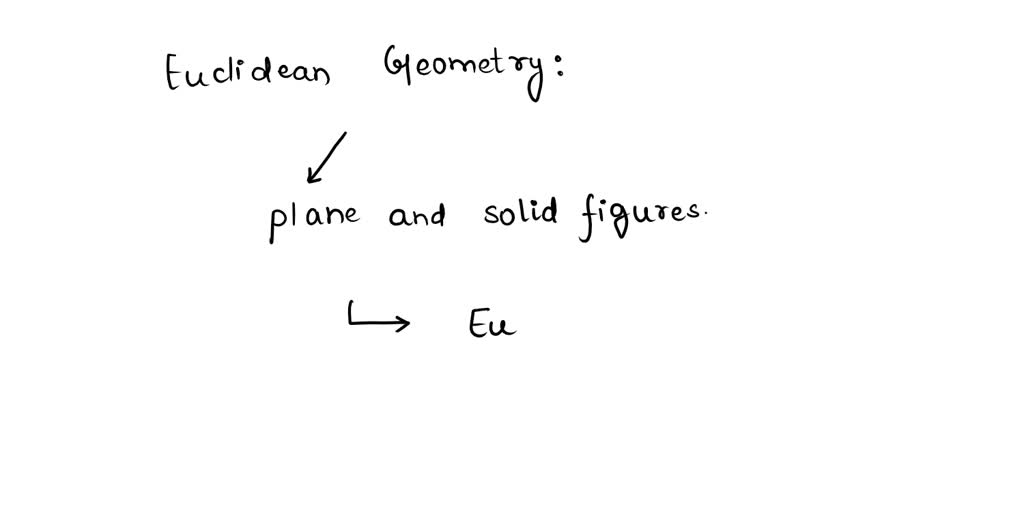 Euclidean Geometry:
plane and solid figures.
Eu